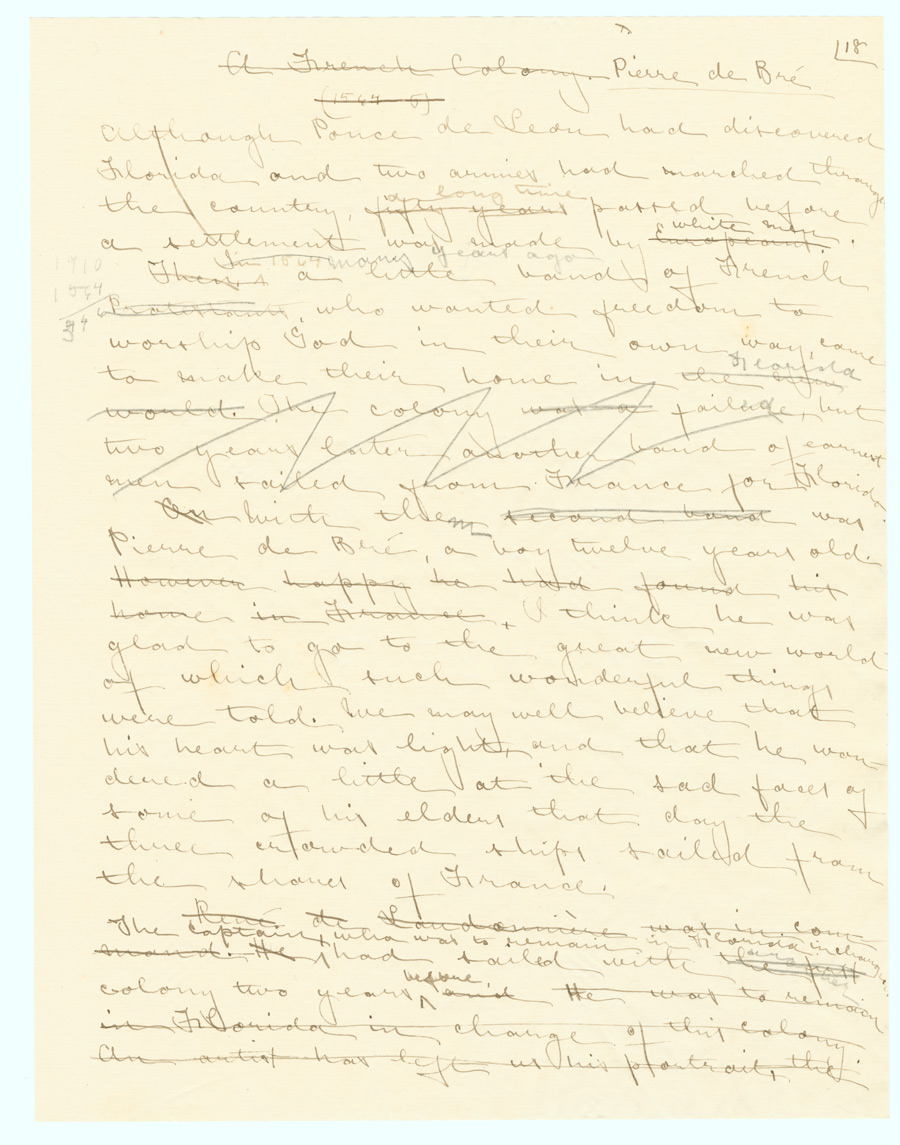 18
A French Colony. Pierre de Bré
(1564-5)
Although Ponce de Leon had discovered
Florida and two armies had marched through
a long time
the country, fifty years passed before
white men.
a settlement was made by Europeans.
In 1564 many years ago
1910
There a little band of French
1564
Protestants, who wanted freedom to
346
worship God in their own way, came
Florida
to make their home in the new
world. The colony was a failure, but
two years later another band of earnest
men sailed from France for Florida.
On With them second band was
Pierre de Bré, a boy twelve years old.
However happy he had found his
home in France, I think he was
glad to go to the great new world
of which such wonderful things
were told. We may well believe that
his heart was light, and that he won-
dered a little at the sad faces of
some of his elders that day the
three crowded ships sailed from
the shores of France.
René de Laudonnière was in com-
The captain, who was to remain in Florida in charge
mand. He had sailed with the first
before
colony two years and He was to remain
in Florida in charge of this colony
An artist has left us his portrait, the